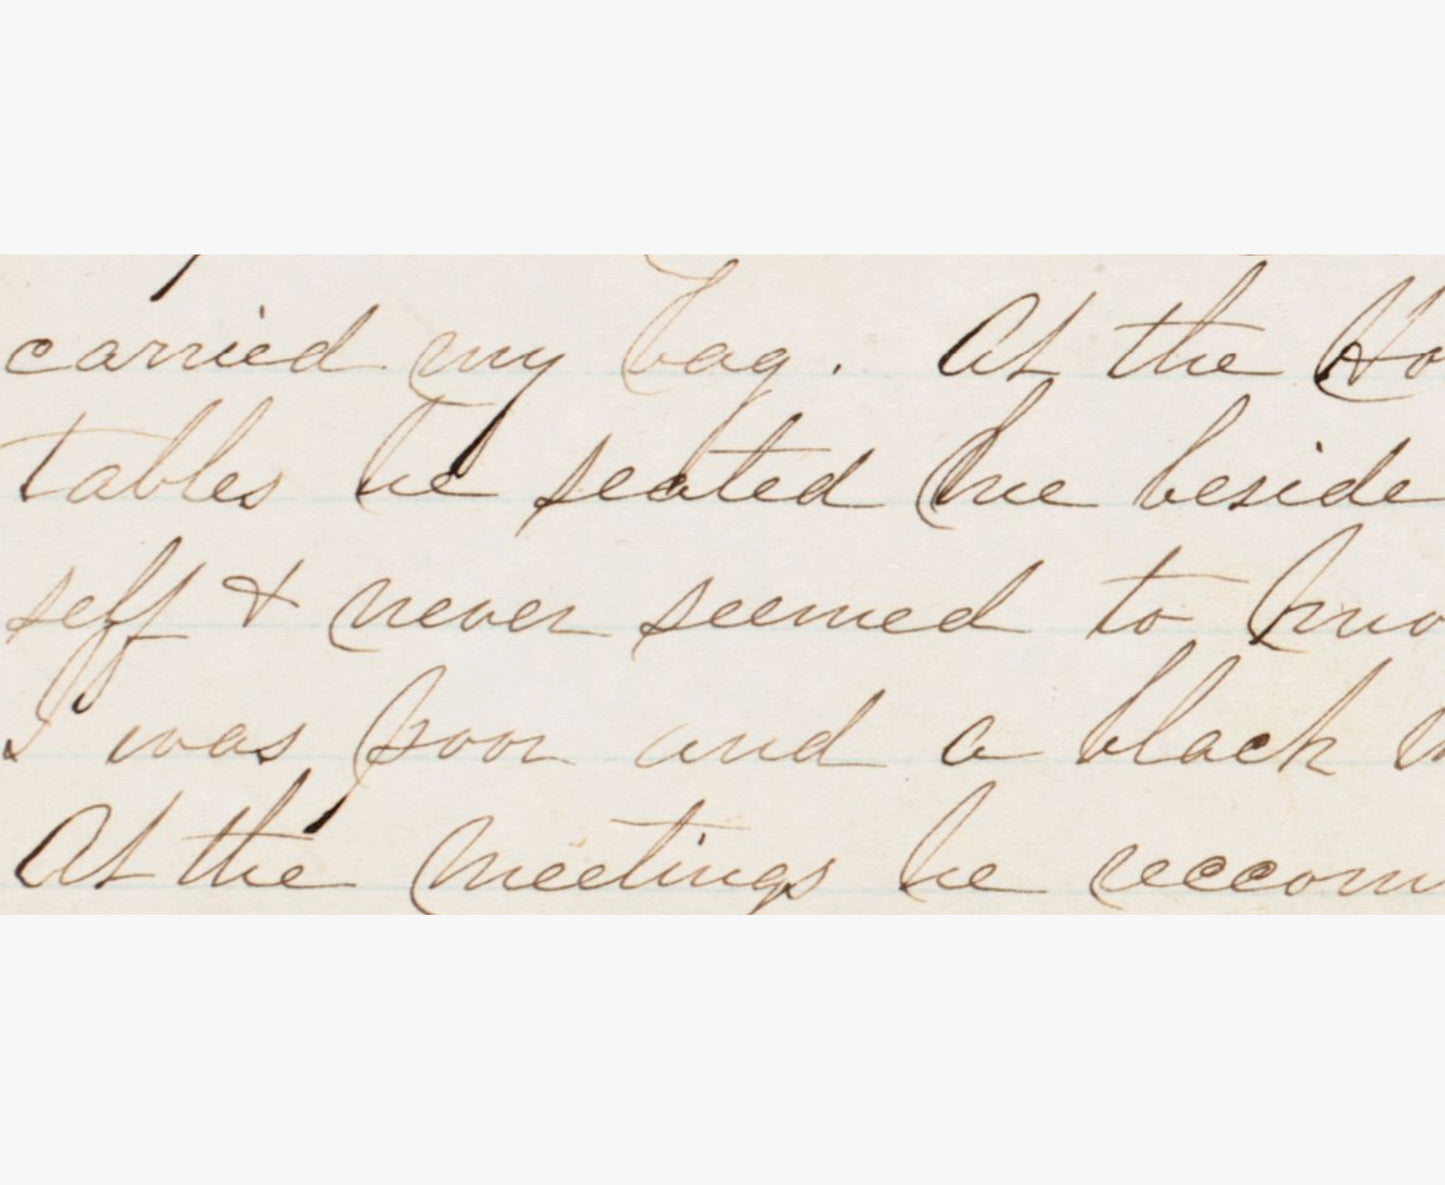 carried my bag. At the Ho
tables he seated me beside
self & never seemed to kno
I was poor and a black m
At the meetings he reccom